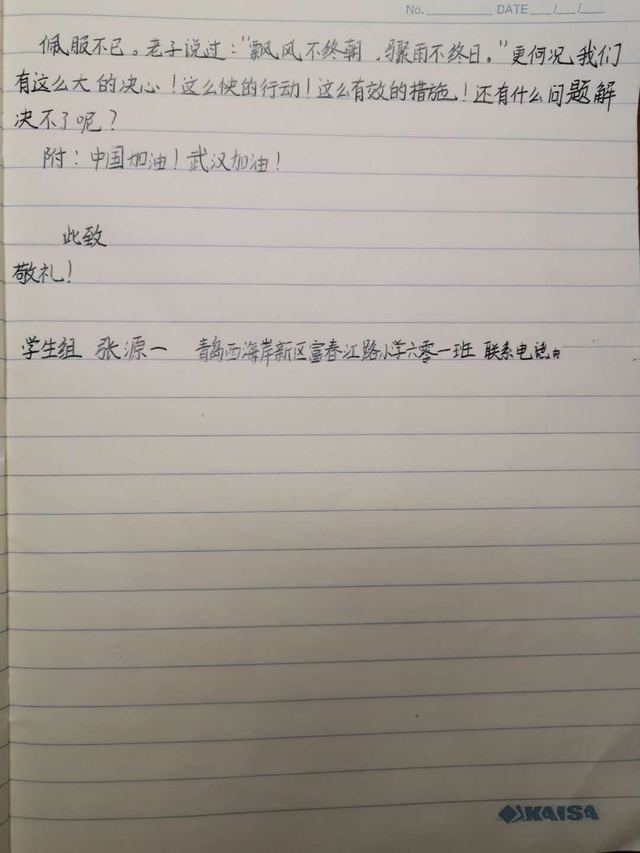 No. DATE / /
佩服不已。老子说过:“飘风不终朝，骤雨不终日。”更何况,我们
有这么大的决心！这么快的行动！这么有效的措施！还有什么问题解
决不了呢？
附：中国加油！武汉加油！
此致
敬礼！
学生组 张源一 青岛西海岸新区富春江路小学六零一班 联系电话
KAISA